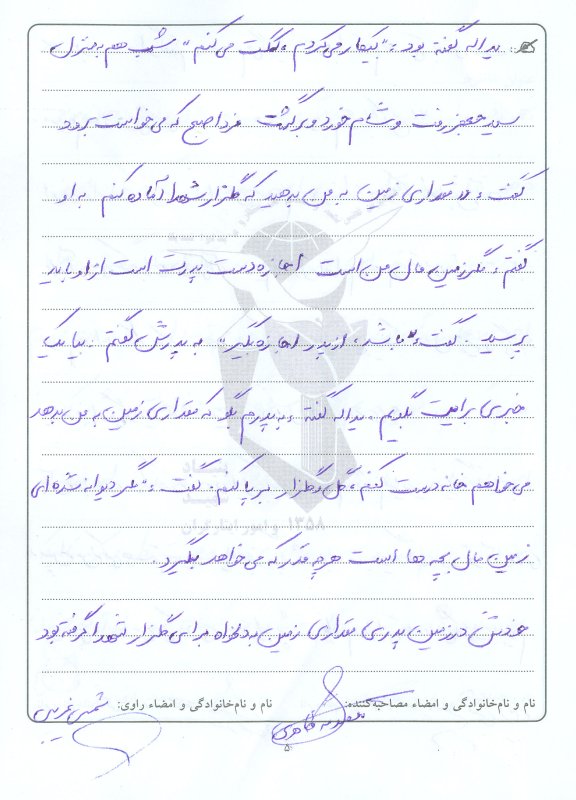 یداله گفته بود: "بیکار می‌گردم، گشت می‌کنم" شب هم به منزل
سید جعفر رفت و شام خورد و برگشت فردا صبح که می‌خواست برود
گفت: "مقداری زمین به من بدهید که گلزار شهدا آماده کنم به او
گفتم: مگر زمین مال من است اجازه دست پدرت است از او باید
پرسید. گفت: "باشد، از پدر اجازه بگیر" به پدرش گفتم. بیا یک
خبری برایت بگویم. یداله گفته: به پدرم بگو که مقداری زمین به من بدهد
می‌خواهم خانه درست کنم، گل و گلزار برپا کنم. گفت: "مگر دیوانه شده‌ای
زمین مال بچه ها است هرچه قدر که می‌خواهد بگیرد.
خودش در زمین پدری مقداری زمین به دلخواه برای گلزار شهدا گرفته بود
نام و نام‌خانوادگی و امضاء مصاحبه‌کننده: نام و نام‌خانوادگی و امضاء راوی:
۵